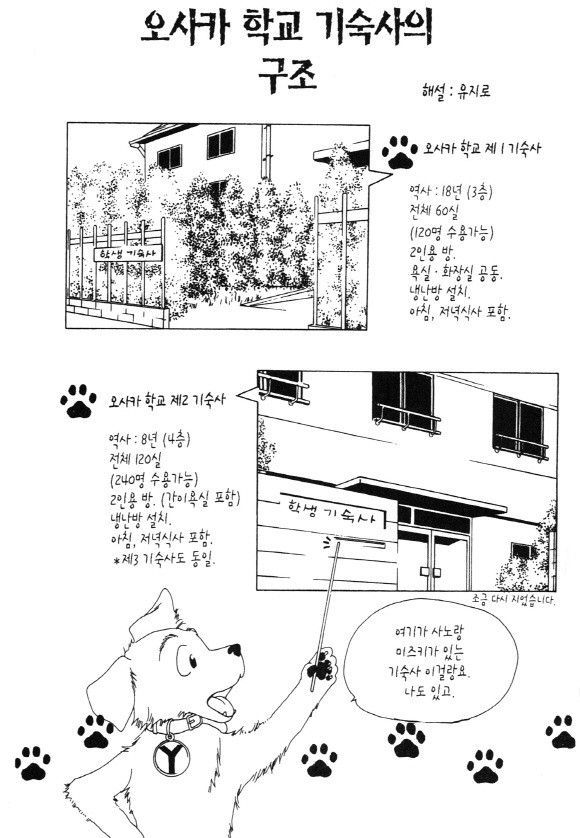 오사카 학교 기숙사의
구조
해설 : 유지로
오사카 학교 제 1 기숙사
역사 : 18년 (3층)
전체 60실
(120명 수용가능)
2인용 방.
욕실 · 화장실 공동.
냉난방 설치.
아침, 저녁식사 포함.
학생 기숙사
오사카 학교 제2 기숙사
역사 : 8년 (4층)
전체 120실
(240명 수용가능)
2인용 방. (간이욕실 포함)
냉난방 설치.
아침, 저녁식사 포함.
*제3 기숙사도 동일.
학생 기숙사
조금 다시 지었습니다.
여기가 사노랑
미즈키가 있는
기숙사 이걸랑요.
나도 있고.
Y